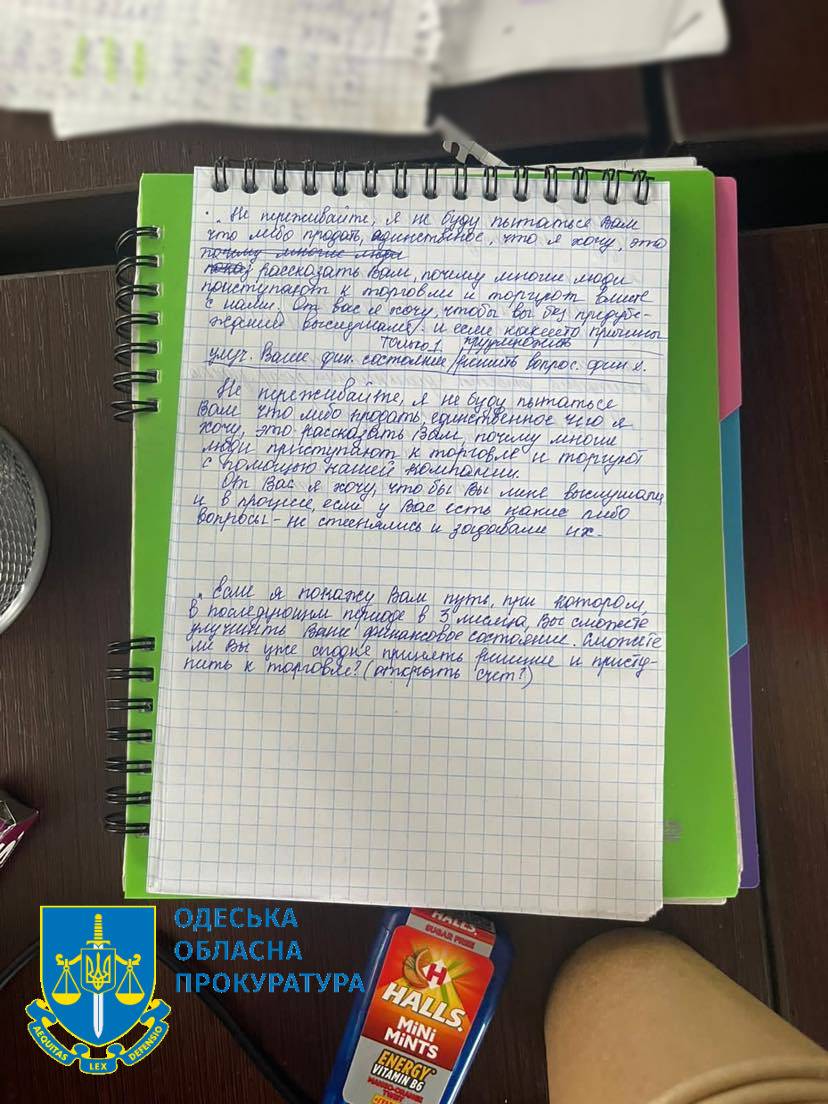 . Не переживайте, я не буду пытаться Вам
что либо продать, единственое, что я хочу, это
почему многие люди
рассказать Вам, почему многие люди
приступают к торговли и торгуют вместе
с нами. От вас я хочу, чтобы вы без предубе-
ждений выслушали и если
только 1
улуч. Ваше фин. состояние / решить вопрос. фин х.
Не переживайте, я не буду пытаться
Вам что либо продать, единственное чего я
хочу, это рассказать Вам, почему многие
люди приступают к торговле и торгуют
с помощью нашей компании.
От Вас я хочу, что бы Вы мине выслушали
и в процессе, если у Вас есть какие либо
вопросы - не стеснялись и задавали их.
. Если я покажу Вам путь, при котором,
в последующим периоде в 3 месяца, Вы сможете
улучшить Ваше финансовое состояние. Сможете
ли Вы уже сегодня принять решение и присту-
пить к торговле? (открыть счет?)
ОДЕСЬКА
ОБЛАСНА
ПРОКУРАТУРА
AEQUITAS LEX DEFENSIO
HALLS
SUGAR FREE
HALLS
MiNi
MiNTS
ENERGY
VITAMIN B6
MANGO-ORANGE
TWIST